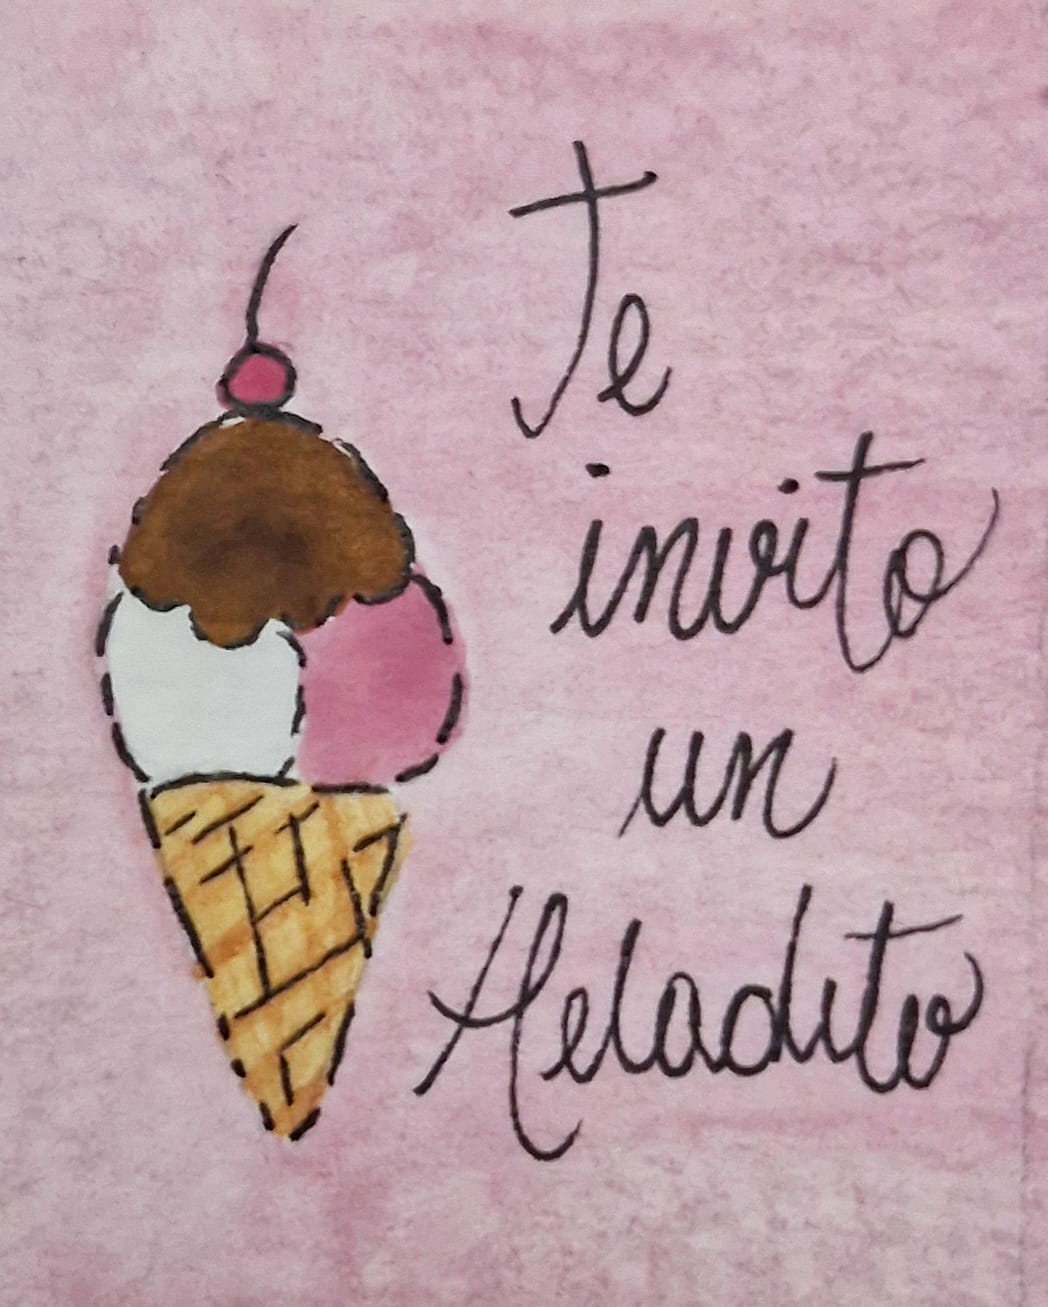 Te
invito
un
Heladito